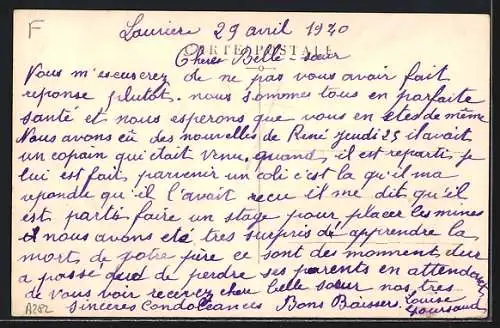 F
Laurière 29 avril 1940
CARTE POSTALE
Chère Belle-sœur
Vous m'escuserez de ne pas vous avoir fait
reponse plutôt. nous sommes tous en parfaite
santé et nous esperons que vous en etes de même
Nous avons eû des nouvelles de René jeudi 25 il avait
un copain qui était venu. quand il est reparti je
lui est fait parvenir un coli c'est la qu'il m'a
repondu qu'il l'avait recu il me dit qu'il
est parti faire un stage pour placer les mines
et nous avons eté tres surpris de apprendre la
mort de votre père ce sont des moment dur
a passé que de perdre ses parents en attendant
de vous voir recevez chere belle sœur nos très
sincères condoléances Bons Baisers. Louise
A282